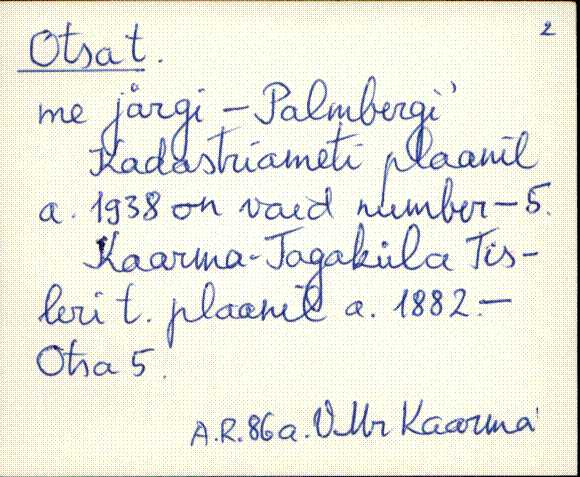 2
Otsa t.
me järgi – Palmbergi'
Kadastriameti plaanil
a. 1938 on vaid number – 5.
Kaarma-Tagaküla Tis-
leri t. plaanil a. 1882. –
Otsa 5.
A.R. 86 a. VMr Kaarma